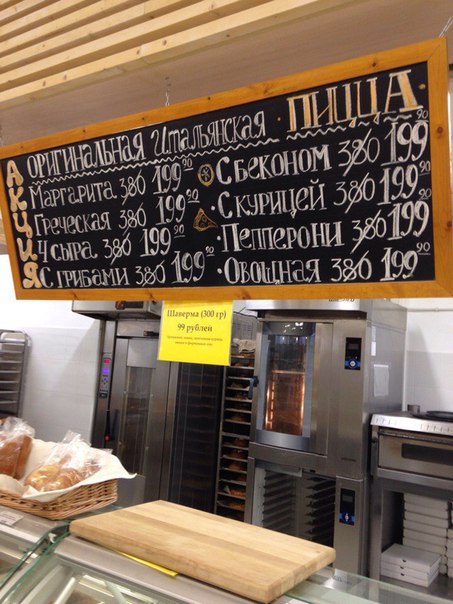 АКЦИЯ
ОРИГИНАЛЬНАЯ Итальянская ПИЦЦА
Маргарита 380 199 90
Греческая 380 199 90
4 сыра 380 199 90
С грибами 380 199 90
С беконом 380 199 90
С курицей 380 199 90
Пепперони 380 199 90
Овощная 380 199 90
Шаверма (300 гр)
99 рублей